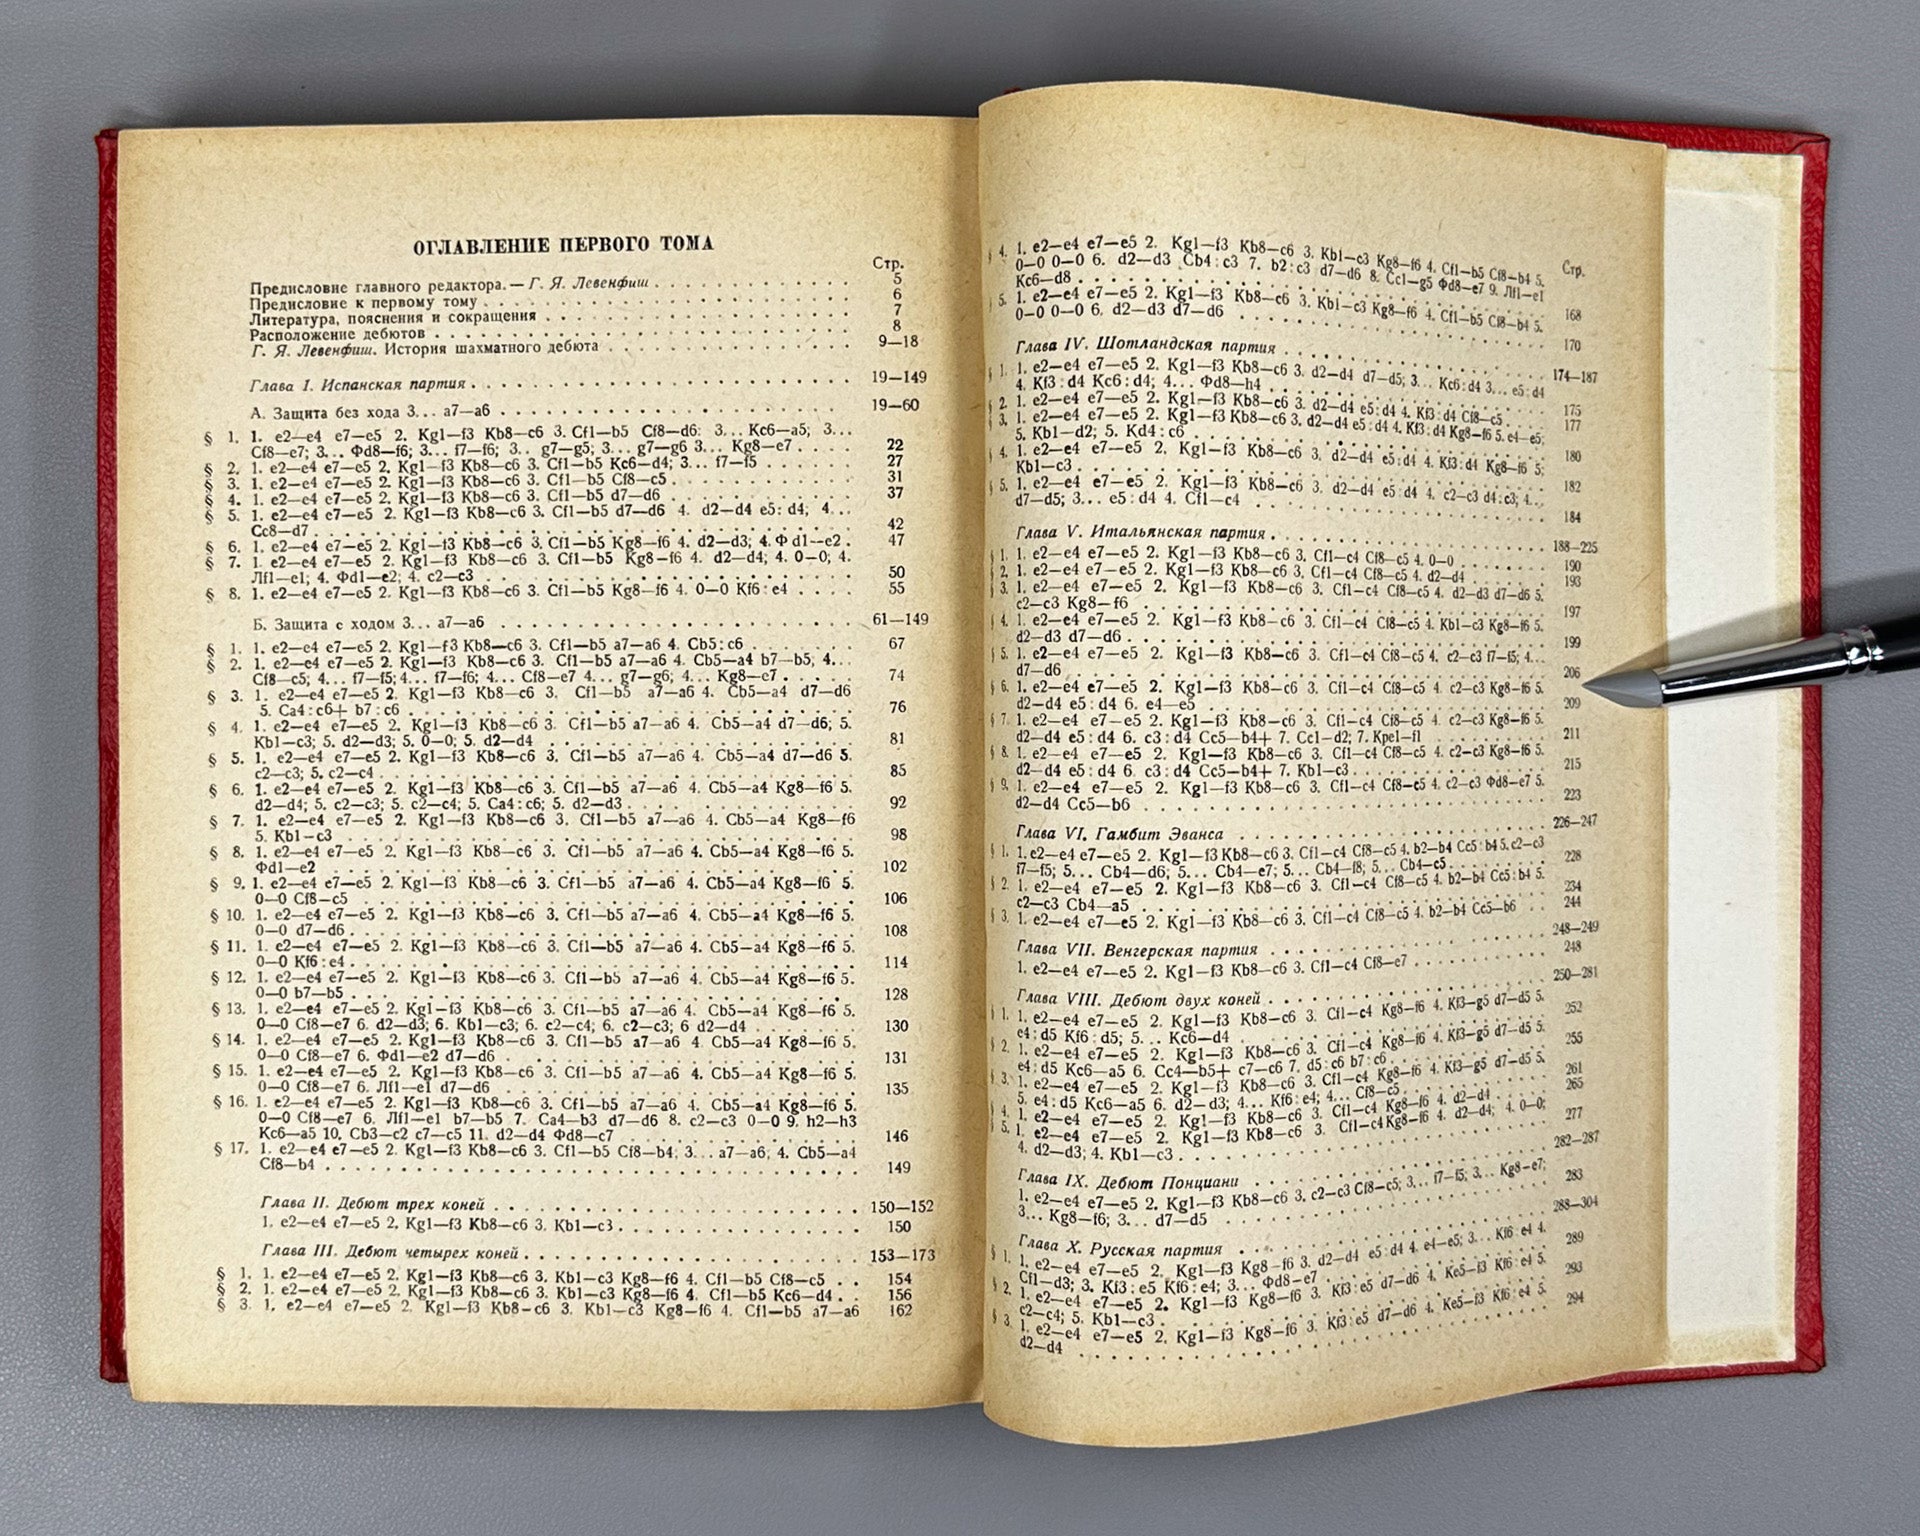 ОГЛАВЛЕНИЕ ПЕРВОГО ТОМА
Стр.
Предисловие главного редактора. — Г. Я. Левенфиш 5
Предисловие к первому тому 6
Литература, пояснения и сокращения 7
Расположение дебютов 8
Г. Я. Левенфиш. История шахматного дебюта 9—18
Глава I. Испанская партия 19—149
А. Защита без хода 3... a7—a6 19—60
§ 1. 1. e2—e4 e7—e5 2. Kg1—f3 Kb8—c6 3. Cf1—b5 Cf8—d6: 3... Kc6—a5; 3...
Cf8—e7; 3... Фd8—f6; 3... f7—f6; 3.. g7—g5; 3... g7—g6 3... Kg8—e7 22
§ 2. 1. e2—e4 e7—e5 2. Kg1—f3 Kb8—c6 3. Cf1—b5 Kc6—d4; 3... f7—f5 27
§ 3. 1. e2—e4 e7—e5 2. Kg1—f3 Kb8—c6 3. Cf1—b5 Cf8—c5 31
§ 4. 1. e2—e4 e7—e5 2. Kg1—f3 Kb8—c6 3. Cf1—b5 d7—d6 37
§ 5. 1. e2—e4 e7—e5 2. Kg1—f3 Kb8—c6 3. Cf1—b5 d7—d6 4. d2—d4 e5:d4; 4...
Cc8—d7 42
§ 6. 1. e2—e4 e7—e5 2. Kg1—f3 Kb8—c6 3. Cf1—b5 Kg8—f6 4. d2—d3; 4. Фd1—e2 47
§ 7. 1. e2—e4 e7—e5 2. Kg1—f3 Kb8—c6 3. Cf1—b5 Kg8—f6 4. d2—d4; 4. 0—0; 4.
Лf1—e1; 4. Фd1—e2; 4. c2—c3 50
§ 8. 1. e2—e4 e7—e5 2. Kg1—f3 Kb8—c6 3. Cf1—b5 Kg8—f6 4. 0—0 Kf6:e4 55
Б. Защита с ходом 3... a7—a6 61—149
§ 1. 1. e2—e4 e7—e5 2. Kg1—f3 Kb8—c6 3. Cf1—b5 a7—a6 4. Cb5:c6 67
§ 2. 1. e2—e4 e7—e5 2. Kg1—f3 Kb8—c6 3. Cf1—b5 a7—a6 4. Cb5—a4 b7—b5; 4...
Cf8—c5; 4... f7—f5; 4... f7—f6; 4... Cf8—e7 4... g7—g6; 4... Kg8—e7 74
§ 3. 1. e2—e4 e7—e5 2. Kg1—f3 Kb8—c6 3. Cf1—b5 a7—a6 4. Cb5—a4 d7—d6
5. Ca4:c6+ b7:c6 76
§ 4. 1. e2—e4 e7—e5 2. Kg1—f3 Kb8—c6 3. Cf1—b5 a7—a6 4. Cb5—a4 d7—d6; 5.
Kb1—c3; 5. d2—d3; 5. 0—0; 5. d2—d4 81
§ 5. 1. e2—e4 e7—e5 2. Kg1—f3 Kb8—c6 3. Cf1—b5 a7—a6 4. Cb5—a4 d7—d6 5.
c2—c3; 5. c2—c4 85
§ 6. 1. e2—e4 e7—e5 2. Kg1—f3 Kb8—c6 3. Cf1—b5 a7—a6 4. Cb5—a4 Kg8—f6 5.
d2—d4; 5. c2—c3; 5. c2—c4; 5. Ca4:c6; 5. d2—d3 92
§ 7. 1. e2—e4 e7—e5 2. Kg1—f3 Kb8—c6 3. Cf1—b5 a7—a6 4. Cb5—a4 Kg8—f6
5. Kb1—c3 98
§ 8. 1. e2—e4 e7—e5 2. Kg1—f3 Kb8—c6 3. Cf1—b5 a7—a6 4. Cb5—a4 Kg8—f6 5.
Фd1—e2 102
§ 9. 1. e2—e4 e7—e5 2. Kg1—f3 Kb8—c6 3. Cf1—b5 a7—a6 4. Cb5—a4 Kg8—f6 5.
0—0 Cf8—c5 106
§ 10. 1. e2—e4 e7—e5 2. Kg1—f3 Kb8—c6 3. Cf1—b5 a7—a6 4. Cb5—a4 Kg8—f6 5.
0—0 d7—d6 108
§ 11. 1. e2—e4 e7—e5 2. Kg1—f3 Kb8—c6 3. Cf1—b5 a7—a6 4. Cb5—a4 Kg8—f6 5.
0—0 Kf6:e4 114
§ 12. 1. e2—e4 e7—e5 2. Kg1—f3 Kb8—c6 3. Cf1—b5 a7—a6 4. Cb5—a4 Kg8—f6 5.
0—0 b7—b5 128
§ 13. 1. e2—e4 e7—e5 2. Kg1—f3 Kb8—c6 3. Cf1—b5 a7—a6 4. Cb5—a4 Kg8—f6 5.
0—0 Cf8—e7 6. d2—d3; 6. Kb1—c3; 6. c2—c4; 6. c2—c3; 6 d2—d4 130
§ 14. 1. e2—e4 e7—e5 2. Kg1—f3 Kb8—c6 3. Cf1—b5 a7—a6 4. Cb5—a4 Kg8—f6 5.
0—0 Cf8—e7 6. Фd1—e2 d7—d6 131
§ 15. 1. e2—e4 e7—e5 2. Kg1—f3 Kb8—c6 3. Cf1—b5 a7—a6 4. Cb5—a4 Kg8—f6 5.
0—0 Cf8—e7 6. Лf1—e1 d7—d6 135
§ 16. 1. e2—e4 e7—e5 2. Kg1—f3 Kb8—c6 3. Cf1—b5 a7—a6 4. Cb5—a4 Kg8—f6 5.
0—0 Cf8—e7 6. Лf1—e1 b7—b5 7. Ca4—b3 d7—d6 8. c2—c3 0—0 9. h2—h3
Kc6—a5 10. Cb3—c2 c7—c5 11. d2—d4 Фd8—c7 146
§ 17. 1. e2—e4 e7—e5 2. Kg1—f3 Kb8—c6 3. Cf1—b5 Cf8—b4; 3... a7—a6; 4. Cb5—a4
Cf8—b4 149
Глава II. Дебют трех коней 150—152
1. e2—e4 e7—e5 2. Kg1—f3 Kb8—c6 3. Kb1—c3 150
Глава III. Дебют четырех коней 153—173
§ 1. 1. e2—e4 e7—e5 2. Kg1—f3 Kb8—c6 3. Kb1—c3 Kg8—f6 4. Cf1—b5 Cf8—c5 154
§ 2. 1. e2—e4 e7—e5 2. Kg1—f3 Kb8—c6 3. Kb1—c3 Kg8—f6 4. Cf1—b5 Kc6—d4 156
§ 3. 1. e2—e4 e7—e5 2. Kg1—f3 Kb8—c6 3. Kb1—c3 Kg8—f6 4. Cf1—b5 a7—a6 162
Стр.
§ 4. 1. e2—e4 e7—e5 2. Kg1—f3 Kb8—c6 3. Kb1—c3 Kg8—f6 4. Cf1—b5 Cf8—b4 5.
0—0 0—0 6. d2—d3 Cb4:c3 7. b2:c3 d7—d6 8. Cc1—g5 Фd8—e7 9. Лf1—e1
Kc6—d8 168
§ 5. 1. e2—e4 e7—e5 2. Kg1—f3 Kb8—c6 3. Kb1—c3 Kg8—f6 4. Cf1—b5 Cf8—b4 5.
0—0 0—0 6. d2—d3 d7—d6 170
Глава IV. Шотландская партия 174—187
§ 1. 1. e2—e4 e7—e5 2. Kg1—f3 Kb8—c6 3. d2—d4 d7—d5; 3... Kc6:d4 3... e5:d4
4. Kf3:d4 Kc6:d4; 4... Фd8—h4 175
§ 2. 1. e2—e4 e7—e5 2. Kg1—f3 Kb8—c6 3. d2—d4 e5:d4 4. Kf3:d4 Cf8—c5 177
§ 3. 1. e2—e4 e7—e5 2. Kg1—f3 Kb8—c6 3. d2—d4 e5:d4 4. Kf3:d4 Kg8—f6 5. e4—e5;
5. Kb1—d2; 5. Kd4:c6 180
§ 4. 1. e2—e4 e7—e5 2. Kg1—f3 Kb8—c6 3. d2—d4 e5:d4 4. Kf3:d4 Kg8—f6 5.
Kb1—c3 182
§ 5. 1. e2—e4 e7—e5 2. Kg1—f3 Kb8—c6 3. d2—d4 e5:d4 4. c2—c3 d4:c3; 4...
d7—d5; 3... e5:d4 4. Cf1—c4 184
Глава V. Итальянская партия 188—225
§ 1. 1. e2—e4 e7—e5 2. Kg1—f3 Kb8—c6 3. Cf1—c4 Cf8—c5 4. 0—0 190
§ 2. 1. e2—e4 e7—e5 2. Kg1—f3 Kb8—c6 3. Cf1—c4 Cf8—c5 4. d2—d4 193
§ 3. 1. e2—e4 e7—e5 2. Kg1—f3 Kb8—c6 3. Cf1—c4 Cf8—c5 4. d2—d3 d7—d6 5.
c2—c3 Kg8—f6 197
§ 4. 1. e2—e4 e7—e5 2. Kg1—f3 Kb8—c6 3. Cf1—c4 Cf8—c5 4. Kb1—c3 Kg8—f6 5.
d2—d3 d7—d6 199
§ 5. 1. e2—e4 e7—e5 2. Kg1—f3 Kb8—c6 3. Cf1—c4 Cf8—c5 4. c2—c3 f7—f5; 4...
d7—d6 206
§ 6. 1. e2—e4 e7—e5 2. Kg1—f3 Kb8—c6 3. Cf1—c4 Cf8—c5 4. c2—c3 Kg8—f6 5.
d2—d4 e5:d4 6. e4—e5 209
§ 7. 1. e2—e4 e7—e5 2. Kg1—f3 Kb8—c6 3. Cf1—c4 Cf8—c5 4. c2—c3 Kg8—f6 5.
d2—d4 e5:d4 6. c3:d4 Cc5—b4+ 7. Cc1—d2; 7. Kpe1—f1 211
§ 8. 1. e2—e4 e7—e5 2. Kg1—f3 Kb8—c6 3. Cf1—c4 Cf8—c5 4. c2—c3 Kg8—f6 5.
d2—d4 e5:d4 6. c3:d4 Cc5—b4+ 7. Kb1—c3 215
§ 9. 1. e2—e4 e7—e5 2. Kg1—f3 Kb8—c6 3. Cf1—c4 Cf8—c5 4. c2—c3 Фd8—e7 5.
d2—d4 Cc5—b6 223
Глава VI. Гамбит Эванса 226—247
§ 1. 1. e2—e4 e7—e5 2. Kg1—f3 Kb8—c6 3. Cf1—c4 Cf8—c5 4. b2—b4 Cc5:b4 5. c2—c3
f7—f5; 5... Cb4—d6; 5... Cb4—e7; 5... Cb4—f8; 5... Cb4—c5 228
§ 2. 1. e2—e4 e7—e5 2. Kg1—f3 Kb8—c6 3. Cf1—c4 Cf8—c5 4. b2—b4 Cc5:b4 5.
c2—c3 Cb4—a5 234
§ 3. 1. e2—e4 e7—e5 2. Kg1—f3 Kb8—c6 3. Cf1—c4 Cf8—c5 4. b2—b4 Cc5—b6 244
Глава VII. Венгерская партия 248—249
1. e2—e4 e7—e5 2. Kg1—f3 Kb8—c6 3. Cf1—c4 Cf8—e7 248
Глава VIII. Дебют двух коней 250—281
§ 1. 1. e2—e4 e7—e5 2. Kg1—f3 Kb8—c6 3. Cf1—c4 Kg8—f6 4. Kf3—g5 d7—d5 5.
e4:d5 Kf6:d5; 5... Kc6—d4 252
§ 2. 1. e2—e4 e7—e5 2. Kg1—f3 Kb8—c6 3. Cf1—c4 Kg8—f6 4. Kf3—g5 d7—d5 5.
e4:d5 Kc6—a5 6. Cc4—b5+ c7—c6 7. d5:c6 b7:c6 255
§ 3. 1. e2—e4 e7—e5 2. Kg1—f3 Kb8—c6 3. Cf1—c4 Kg8—f6 4. Kf3—g5 d7—d5
5. e4:d5 Kc6—a5 6. d2—d3; 4... Kf6:e4; 4... Cf8—c5 261
§ 4. 1. e2—e4 e7—e5 2. Kg1—f3 Kb8—c6 3. Cf1—c4 Kg8—f6 4. d2—d4 265
§ 5. 1. e2—e4 e7—e5 2. Kg1—f3 Kb8—c6 3. Cf1—c4 Kg8—f6 4. d2—d4; 4. 0—0;
4. d2—d3; 4. Kb1—c3 277
Глава IX. Дебют Понциани 282—287
1. e2—e4 e7—e5 2. Kg1—f3 Kb8—c6 3. c2—c3 Cf8—c5; 3... f7—f5; 3... Kg8—e7;
3... Kg8—f6; 3... d7—d5 283
Глава X. Русская партия 288—304
§ 1. 1. e2—e4 e7—e5 2. Kg1—f3 Kg8—f6 3. d2—d4 e5:d4 4. e4—e5; 3... Kf6:e4 4.
Cf1—d3; 3. Kf3:e5 Kf6:e4; 3... Фd8—e7 289
§ 2. 1. e2—e4 e7—e5 2. Kg1—f3 Kg8—f6 3. Kf3:e5 d7—d6 4. Ke5—f3 Kf6:e4 5.
c2—c4; 5. Kb1—c3 293
§ 3. 1. e2—e4 e7—e5 2. Kg1—f3 Kg8—f6 3. Kf3:e5 d7—d6 4. Ke5—f3 Kf6:e4 5.
d2—d4 294